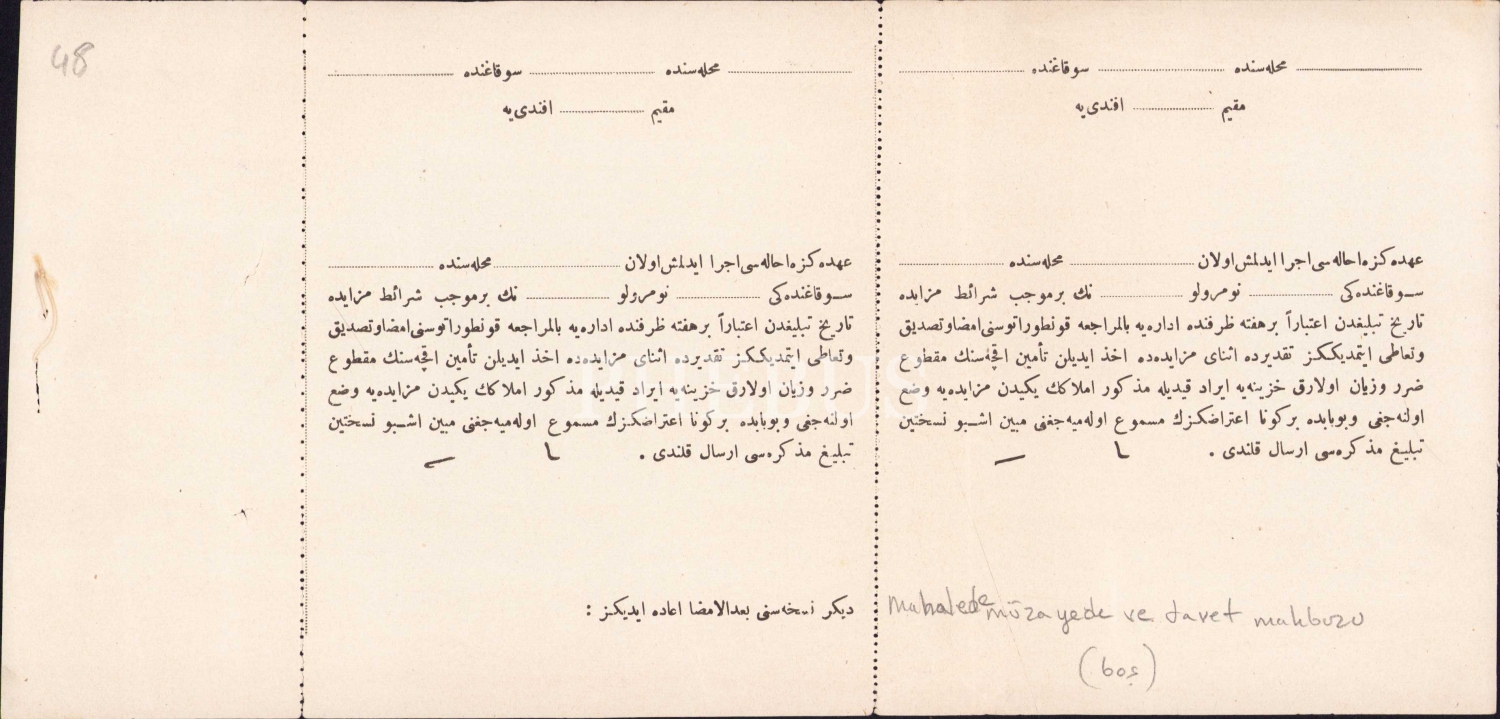 48
محله‌سنده سوقاغنده
مقیم افندی‌یه
عهده كزه احاله‌سی اجرا ایدلمش اولان محله‌سنده
سوقاغنده‌كی نومرولو نك برموجب شرائط مزایده
تاریخ تبلیغدن اعتباراً برهفته ظرفنده اداره‌یه بالمراجعه قونطوراتوسنی امضا وتصدیق
وتعاطی ایتمدیككز تقدیرده اثنای مزایده‌ده اخذ ایدیلن تأمین اقچه‌سنك مقطوع
ضرر وزیان اولارق خزینه‌یه ایراد قیدیله مذكور املاكك یكیدن مزایده‌یه وضع
اولنه‌جغی وبوبابده بركونا اعتراضكزك مسموع اوله‌میه‌جغنی مبین اشبو نسختین
تبلیغ مذكره‌سی ارسال قلندی .
محله‌سنده سوقاغنده
مقیم افندی‌یه
عهده كزه احاله‌سی اجرا ایدلمش اولان محله‌سنده
سوقاغنده‌كی نومرولو نك برموجب شرائط مزایده
تاریخ تبلیغدن اعتباراً برهفته ظرفنده اداره‌یه بالمراجعه قونطوراتوسنی امضا وتصدیق
وتعاطی ایتمدیككز تقدیرده اثنای مزایده‌ده اخذ ایدیلن تأمین اقچه‌سنك مقطوع
ضرر وزیان اولارق خزینه‌یه ایراد قیدیله مذكور املاكك یكیدن مزایده‌یه وضع
اولنه‌جغی وبوبابده بركونا اعتراضكزك مسموع اوله‌میه‌جغنی مبین اشبو نسختین
تبلیغ مذكره‌سی ارسال قلندی .
دیكر نسخه‌سنی بعدالامضا اعاده ایدیكز :
mahalede müzayede ve davet makbuzu
(boş)